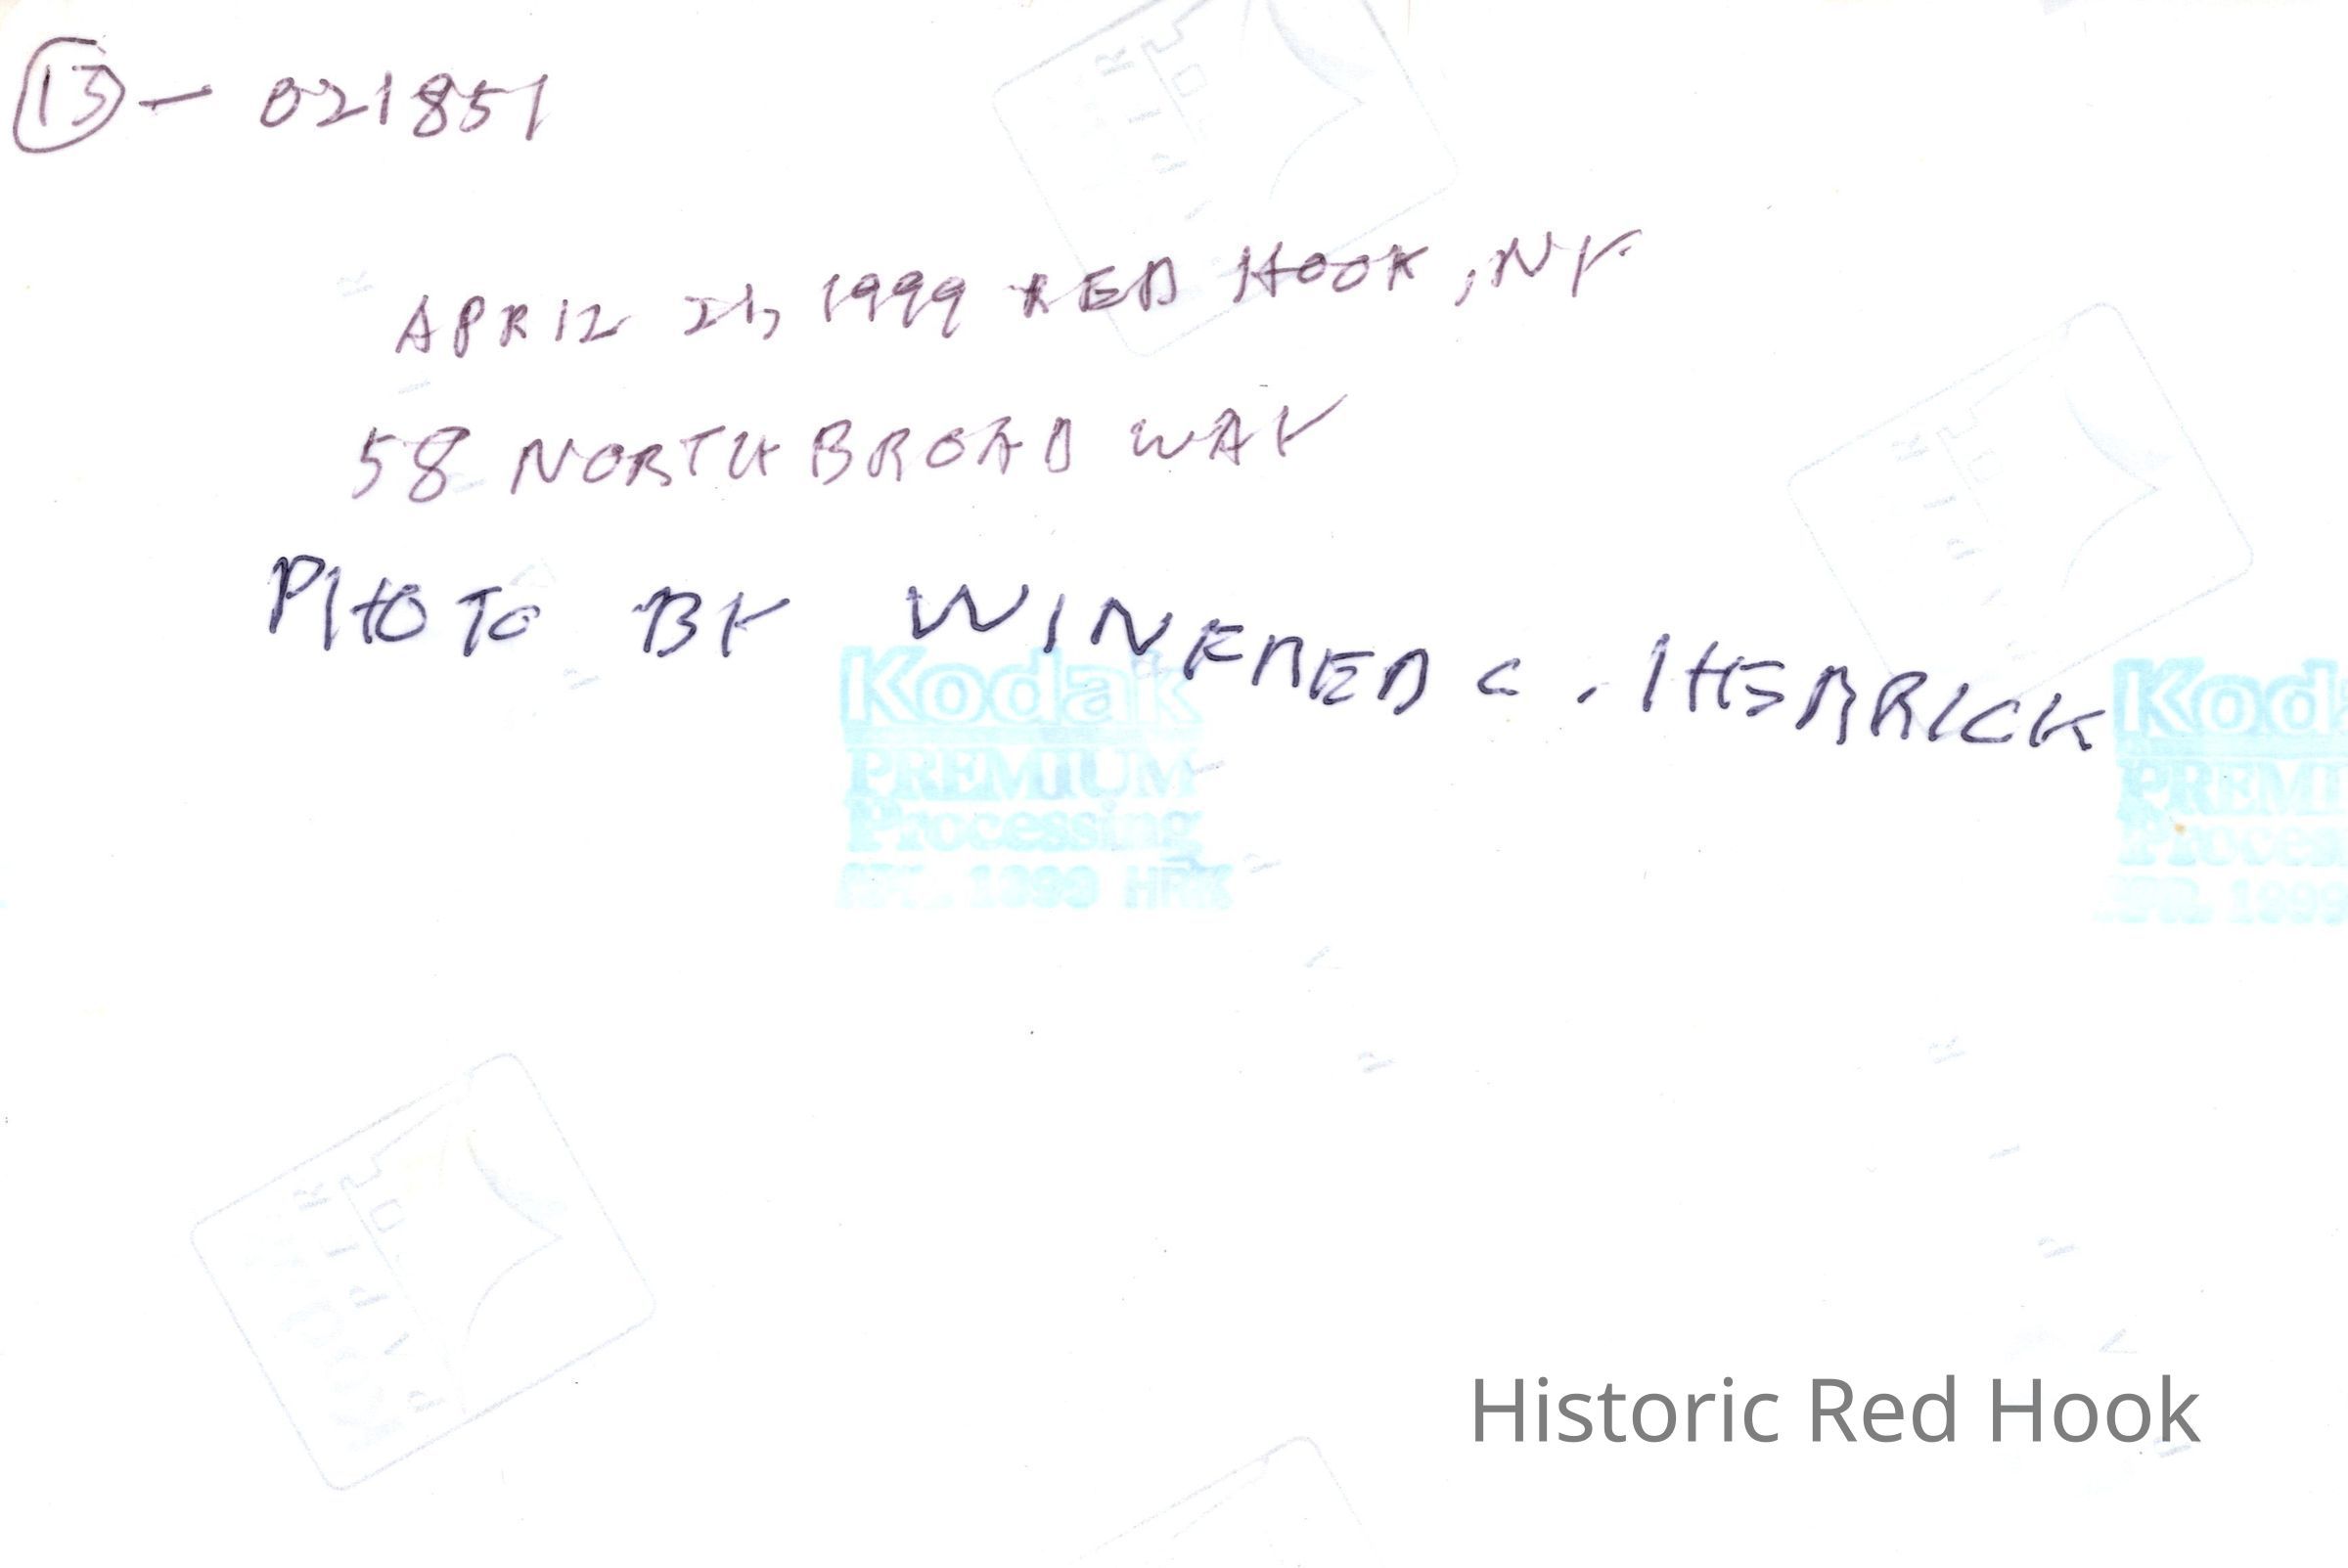 13 - 021851
APRIL 21, 1999 RED HOOK, NY.
58 NORTH BROADWAY
PHOTO BY WINFRED C. HERRICK
Kodak Kod
PREMIUM PREMI
Processing Proces
APR. 1999 HRK APR. 1999
Historic Red Hook